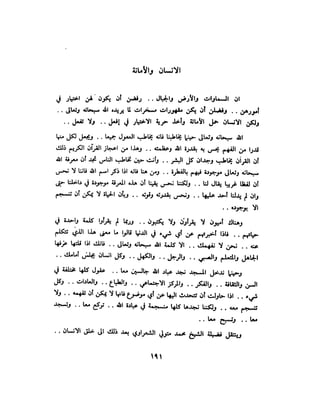 الانسان والأمانة
ان السماوات والأرض والجبال .. رفضن أن يكون لهن اختيار في
أمورهن .. وفضلن أن يكن مقهورات مسخرات لما يريده الله سبحانه وتعالى ..
ولكن الانسان حمل الأمانة وأخذ حرية الاختيار في إفعل .. ولا تفعل ..
الله سبحانه وتعالى حينما يخاطبنا فانه يخاطب العقول جميعا .. ويجعل لكل منا
قدرا من الفهم يحس به بقدرة الله وعظمته .. وهذا من اعجاز القرآن الكريم ذلك
أن القرآن يخاطب وجدان كل البشر .. وأنت حين تخاطب الناس تجد أن معرفة الله
سبحانه وتعالى موجودة فيهم بالفطرة .. ومن هنا فانه اذا ذكر اسم الله فاننا لا نحس
أن لفظا غريبا يقال لنا .. ولكننا نحس يقينا أن هذه المعرفة موجودة في داخلنا حتى
وان لم يدلنا أحد عليها .. ونحس بقدرته وقوته .. وبأن الحياة لا يمكن أن تنسجم
الا بوجوده ..
وهناك أميون لا يقرأون ولا يكتبون .. وربما لم يقرأوا كلمة واحدة في
حياتهم .. فاذا أخبرتهم عن أي شيء في الدنيا قالوا ما معنى هذا الذي تتكلم
عنه .. نحن لا نفهمك .. الا كلمة الله سبحانه وتعالى .. فانك اذا قلتها عرفها
الجاهل والمتعلم والصبي .. والرجل .. والكهل .. وكل انسان يجلس أمامك ..
وحينما ندخل المسجد نجد عباد الله جالسين معا .. عقول كلها مختلفة في
السن والثقافة .. والفكر .. والمركز الاجتماعي .. والطباع .. والعادات .. وكل
شيء .. اذا حاولت أن تتحدث اليها عن أي موضوع فانها لا يمكن أن تفهمه .. ولا
تنسجم معه .. ولكننا نجدها كلها منسجمة في عبادة الله .. تركع معا .. وتسجد
معا .. وتسبح معا ..
وينتقل فضيلة الشيخ محمد متولي الشعراوي بعد ذلك الى خلق الانسان ..
١٩١